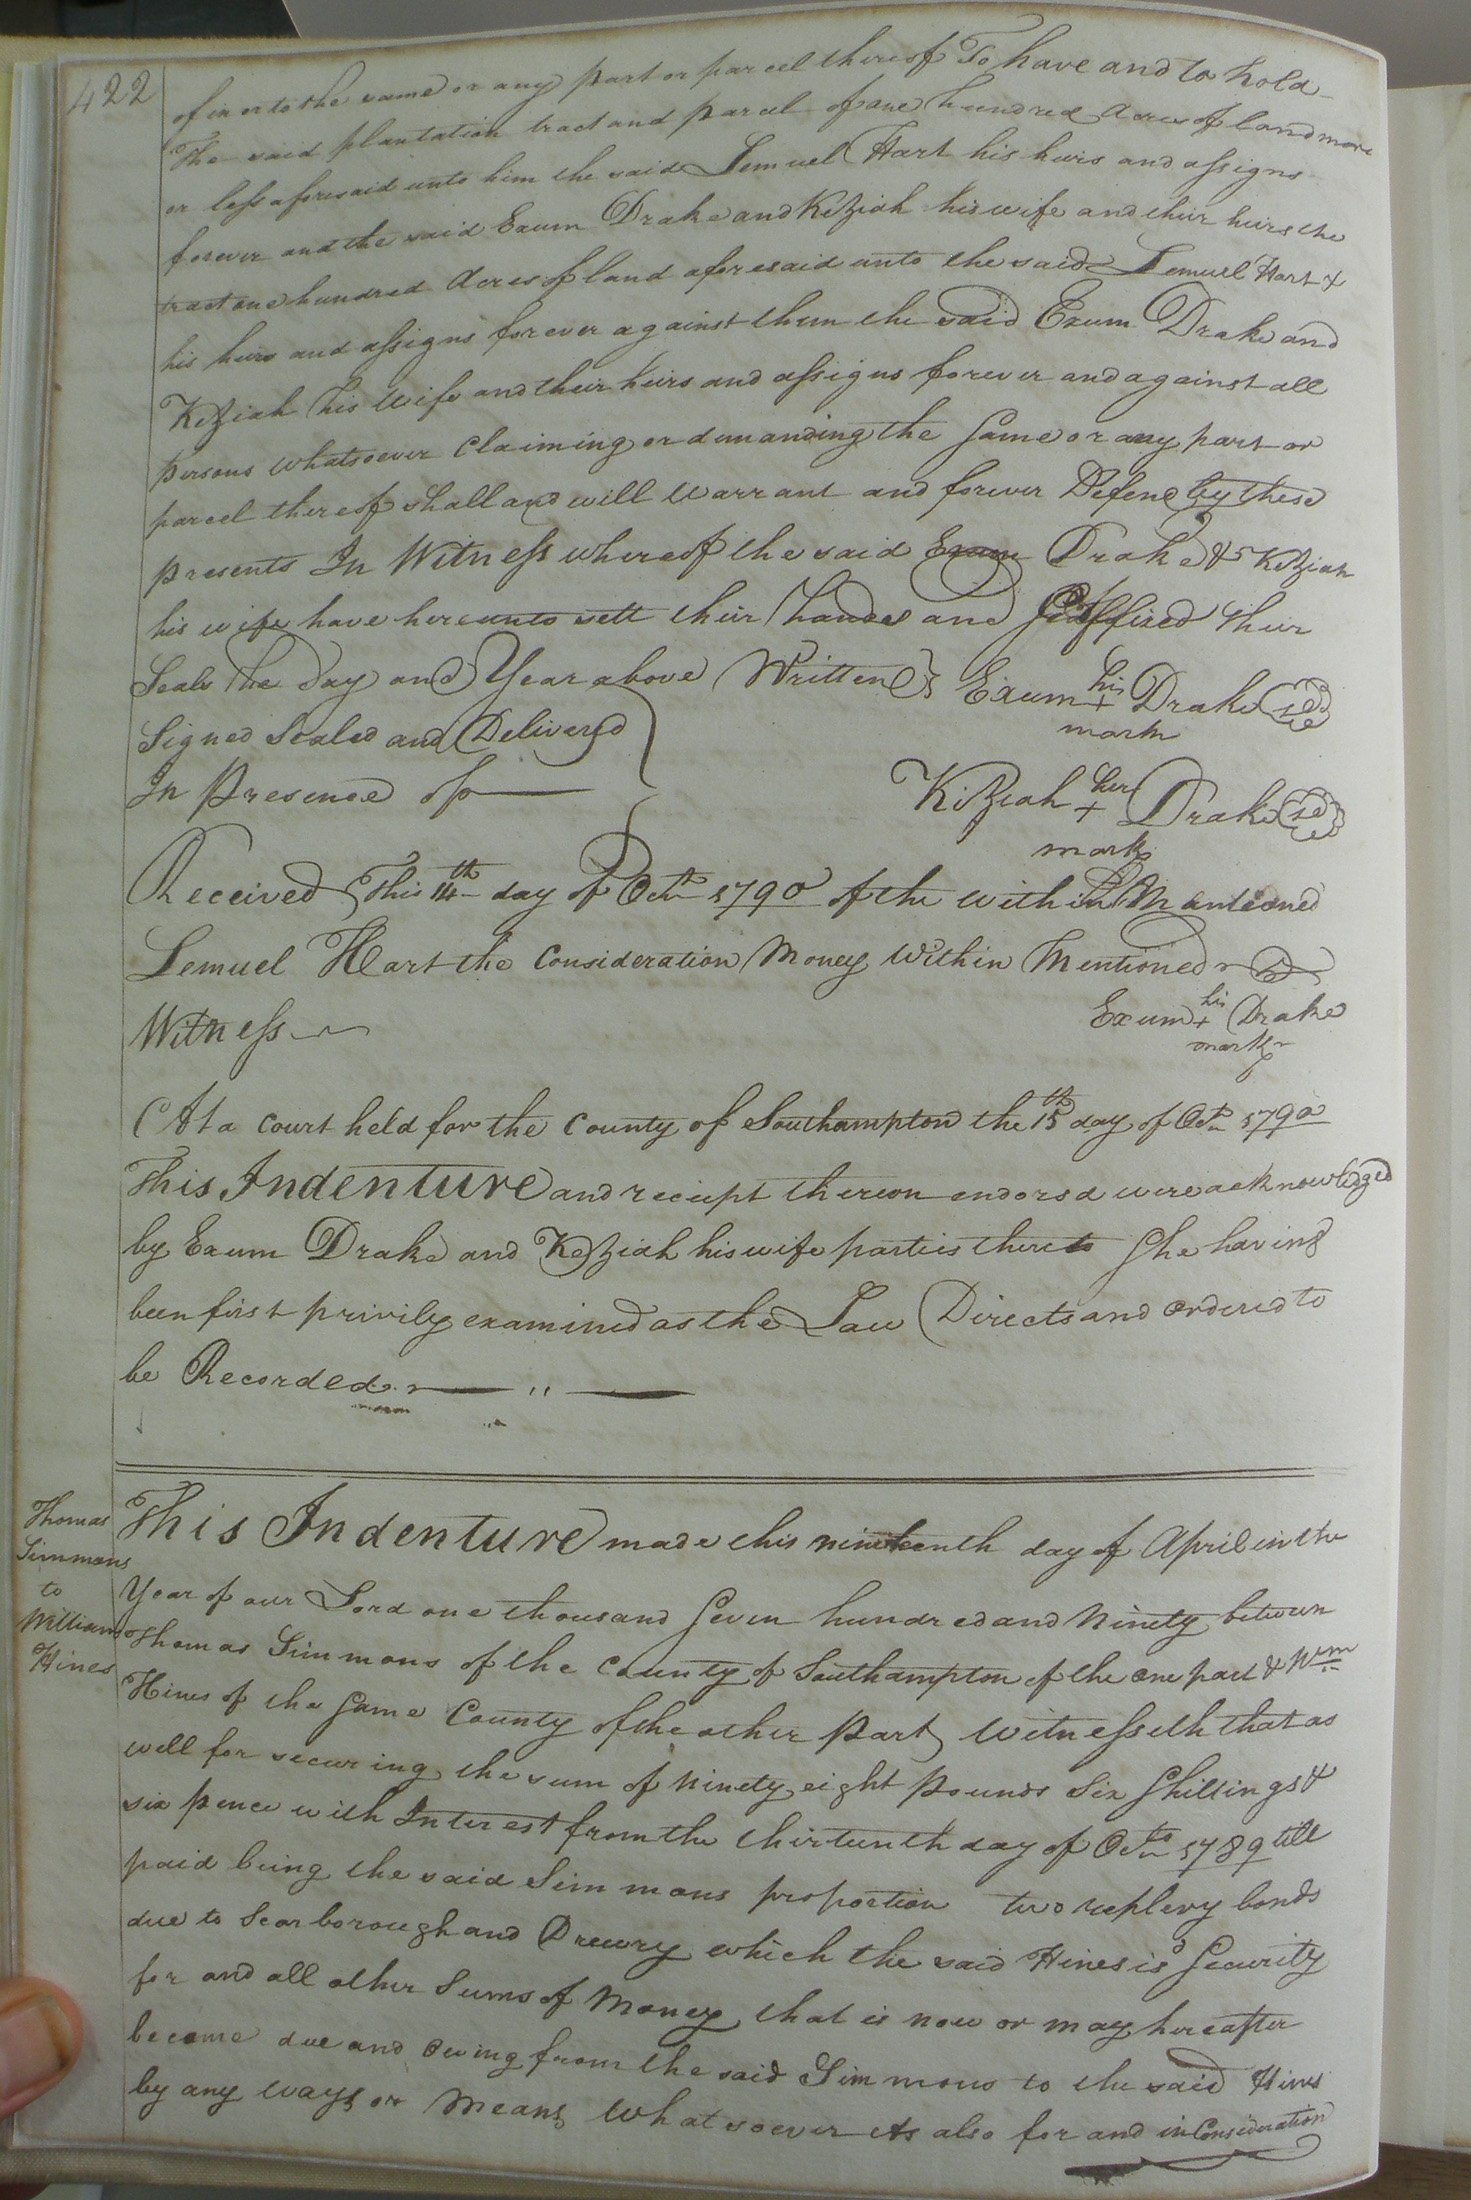 422
of in or to the same or any part or parcel thereof To have and to hold
The said plantation tract and parcel of one hundred Acres of land more
or less aforesaid unto him the said Lemuel Hart his heirs and assigns
forever and the said Exum Drake and Keziah his wife and their heirs the
tract one hundred Acres of land aforesaid unto the said Lemuel Hart &
his heirs and assigns forever against them the said Exum Drake and
Keziah his Wife and their heirs and assigns forever and against all
persons whatsoever Claiming or demanding the same or any part or
parcel thereof shall and will Warrant and forever Defend by these
presents In Witness whereof the said Exum Drake & Kiziah
his wife have hereunto sett their hands and affixed their
Seals the day and Year above Written Exum his + mark Drake
Signed Sealed and Delivered
In Presence of
Kiziah her + mark Drake
Received This 14th day of Octr 1790 of the within Mentioned
Lemuel Hart the Consideration Money Within Mentioned
Exum his + mark Drake
Witness
At a Court held for the County of Southampton the 15th day of Octr 1790
This Indenture and reciept thereon endorsd were acknowledged
by Exum Drake and Keziah his wife parties thereto She having
been first privily examined as the Law Directs and ordered to
be Recorded
Thomas
Simmons
to
William
Hines
This Indenture made this nineteenth day of April in the
Year of our Lord one thousand Seven hundred and Ninety between
Thomas Simmons of the County of Southampton of the one part & Wm
Hines of the Same County of the other Part Witnesseth that as
well for securing the sum of Ninety eight Pounds Six Shillings &
six pence with Interest from the thirteenth day of Octr 1789 till
paid being the said Simmons proportion two replevy bonds
due to Scarborough and Drewry which the said Hines is Security
for and all other Sums of Money that is now or may hereafter
become due and Owing from the said Simmons to the said Hines
by any ways or Means Whatsoever As also for and in Consideration